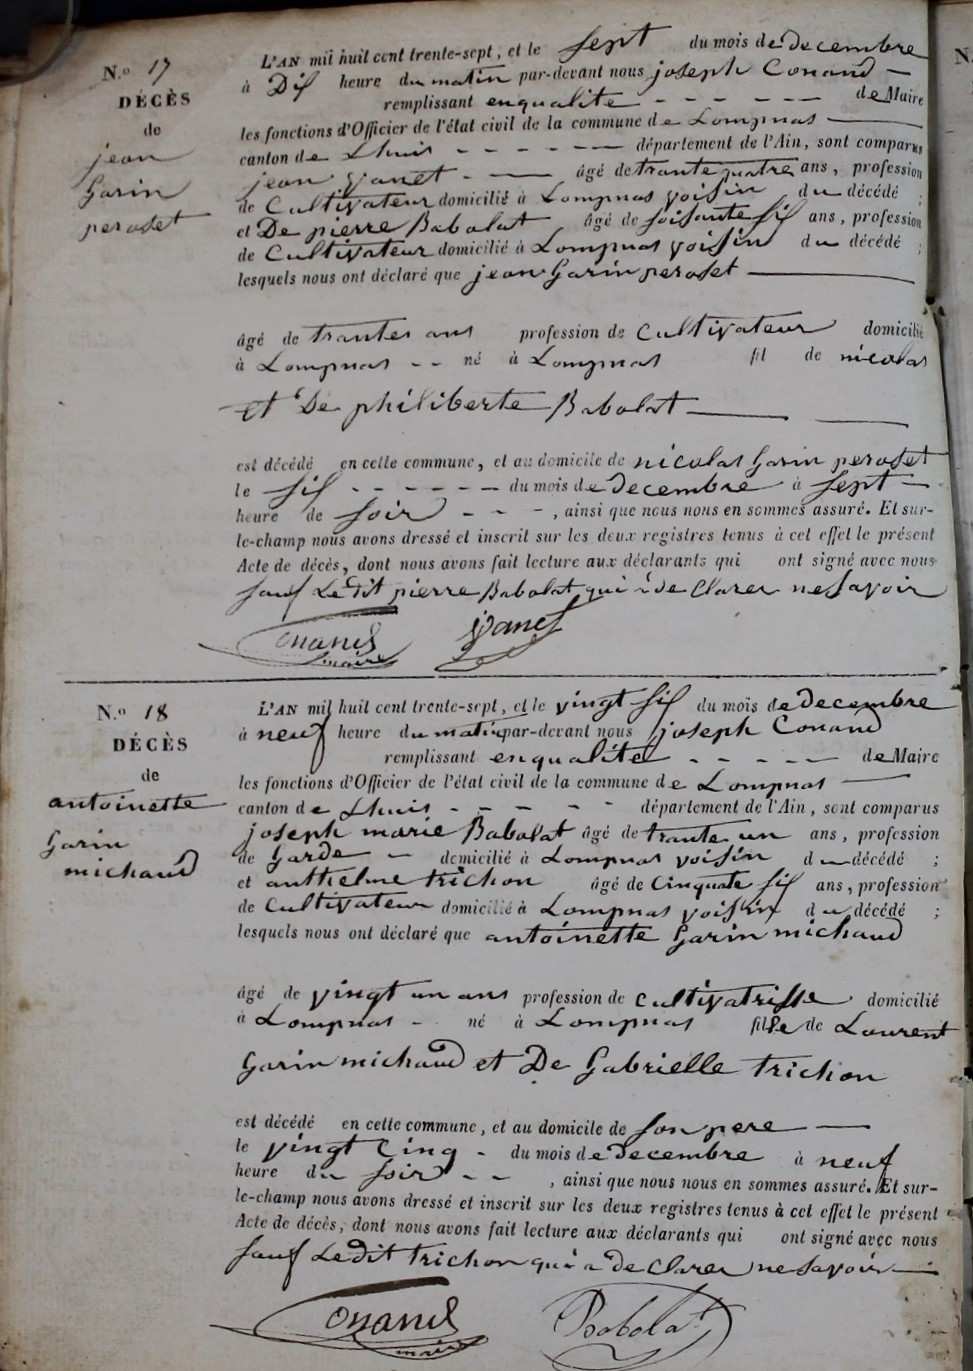 N.o 17
DÉCÈS
de
jean
Garin
peroset
L'AN mil huit cent trente-sept, et le sept du mois de decembre
à Dis heure du matin par-devant nous joseph Conand
remplissant en qualité de Maire
les fonctions d'Officier de l'état civil de la commune de Lompnas
canton de Lhuis département de l'Ain, sont comparus
jean vanet âgé de trante quatre ans, profession
de Cultivateur domicilié à Lompnas voisin du décédé ;
et De pierre Babolat âgé de soisante sis ans, profession
de Cultivateur domicilié à Lompnas voisin du décédé ;
lesquels nous ont déclaré que jean Garin peroset
âgé de trantes ans profession de Cultivateur domicilié
à Lompnas né à Lompnas fil de nicolas
et De philiberte Babolat
est décédé en cette commune, et au domicile de nicolas Garin peroset
le sis du mois de decembre à sept
heure de soir, ainsi que nous nous en sommes assuré. Et sur-
le-champ nous avons dressé et inscrit sur les deux registres tenus à cet effet le présent
Acte de décès, dont nous avons fait lecture aux déclarants qui ont signé avec nous
sauf Ledit pierre Babolat qui a de Clarer ne Savoir
Conand maire vanet
N.o 18
DÉCÈS
de
antoinette
Garin
michaud
L'AN mil huit cent trente-sept, et le vingt sis du mois de decembre
à neuf heure du matin par-devant nous joseph Conand
remplissant en qualité de Maire
les fonctions d'Officier de l'état civil de la commune de Lompnas
canton de Lhuis département de l'Ain, sont comparus
joseph marie Babolat âgé de trante un ans, profession
de Garde domicilié à Lompnas voisin du décédé ;
et anthelme trichon âgé de Cinquate sis ans, profession
de Cultivateur domicilié à Lompnas voisin du décédé ;
lesquels nous ont déclaré que antoinette Garin michaud
âgé de vingt un ans profession de Cultivatrisse domicilié
à Lompnas né à Lompnas fille de Laurent
Garin michaud et De Gabrielle trichon
est décédé en cette commune, et au domicile de son pere
le vingt Cinq du mois de decembre à neuf
heure du soir, ainsi que nous nous en sommes assuré. Et sur-
le-champ nous avons dressé et inscrit sur les deux registres tenus à cet effet le présent
Acte de décès, dont nous avons fait lecture aux déclarants qui ont signé avec nous
sauf Ledit trichon qui a de Clarer ne Savoir
Conand maire Babolat
N.